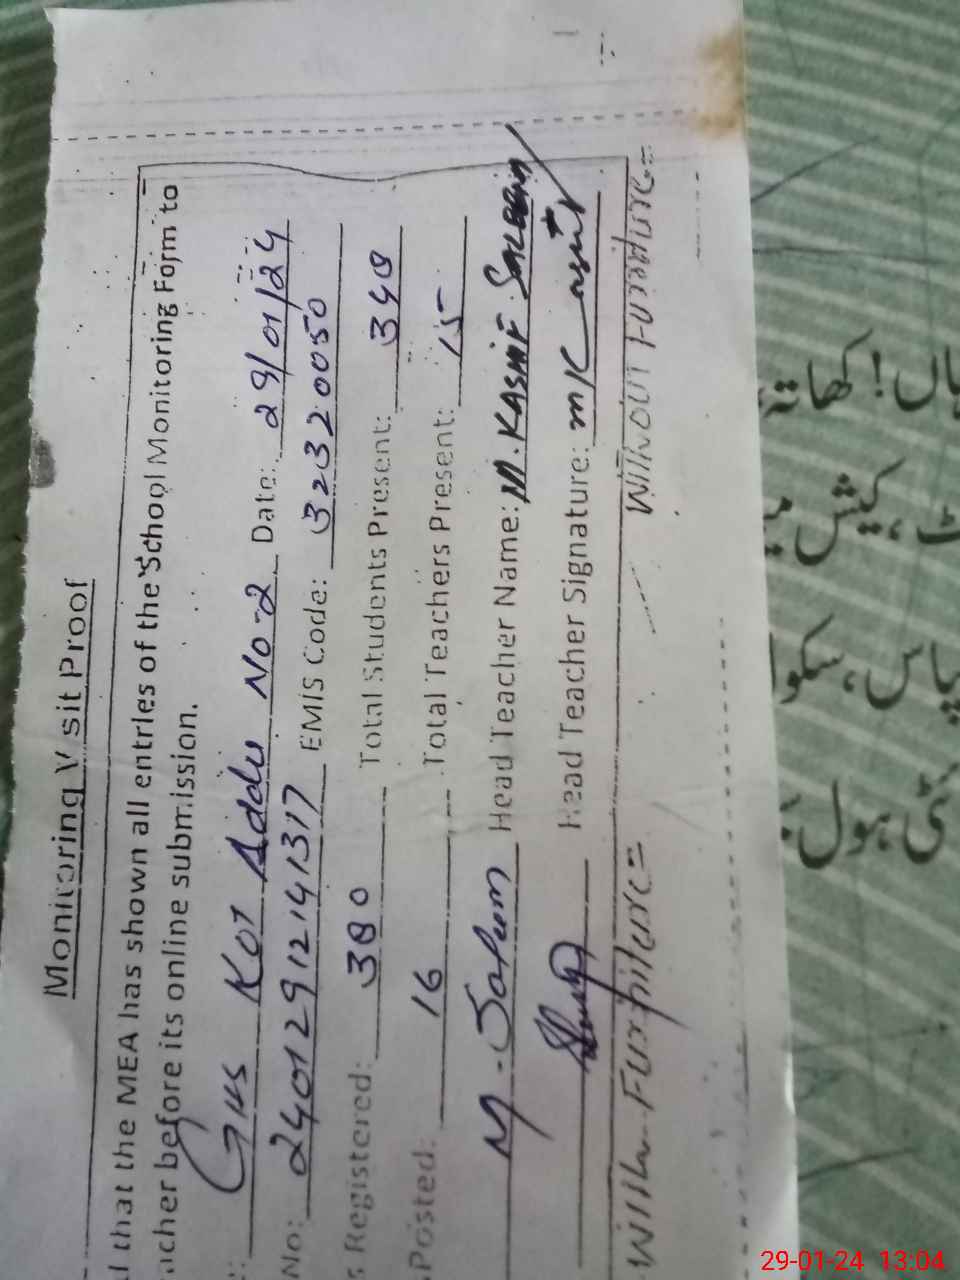 Monitoring Visit Proof
that the MEA has shown all entries of the School Monitoring Form to
acher before its online submission.
GHS Kot Addu No-2 Date: 29/01/24
No: 24012912141317 EMIS Code: 32320050
s Registered: 380 Total Students Present: 348
Posted: 16 Total Teachers Present: 15
M. Saleem Head Teacher Name: M. KASHIF SALEEM
Head Teacher Signature: M Kashif
With Furniture= Without Furniture=
ہاں! کھاتہ
ٹ، کیش می
پاس، سکوا
ئی ہول
29-01-24 13:04